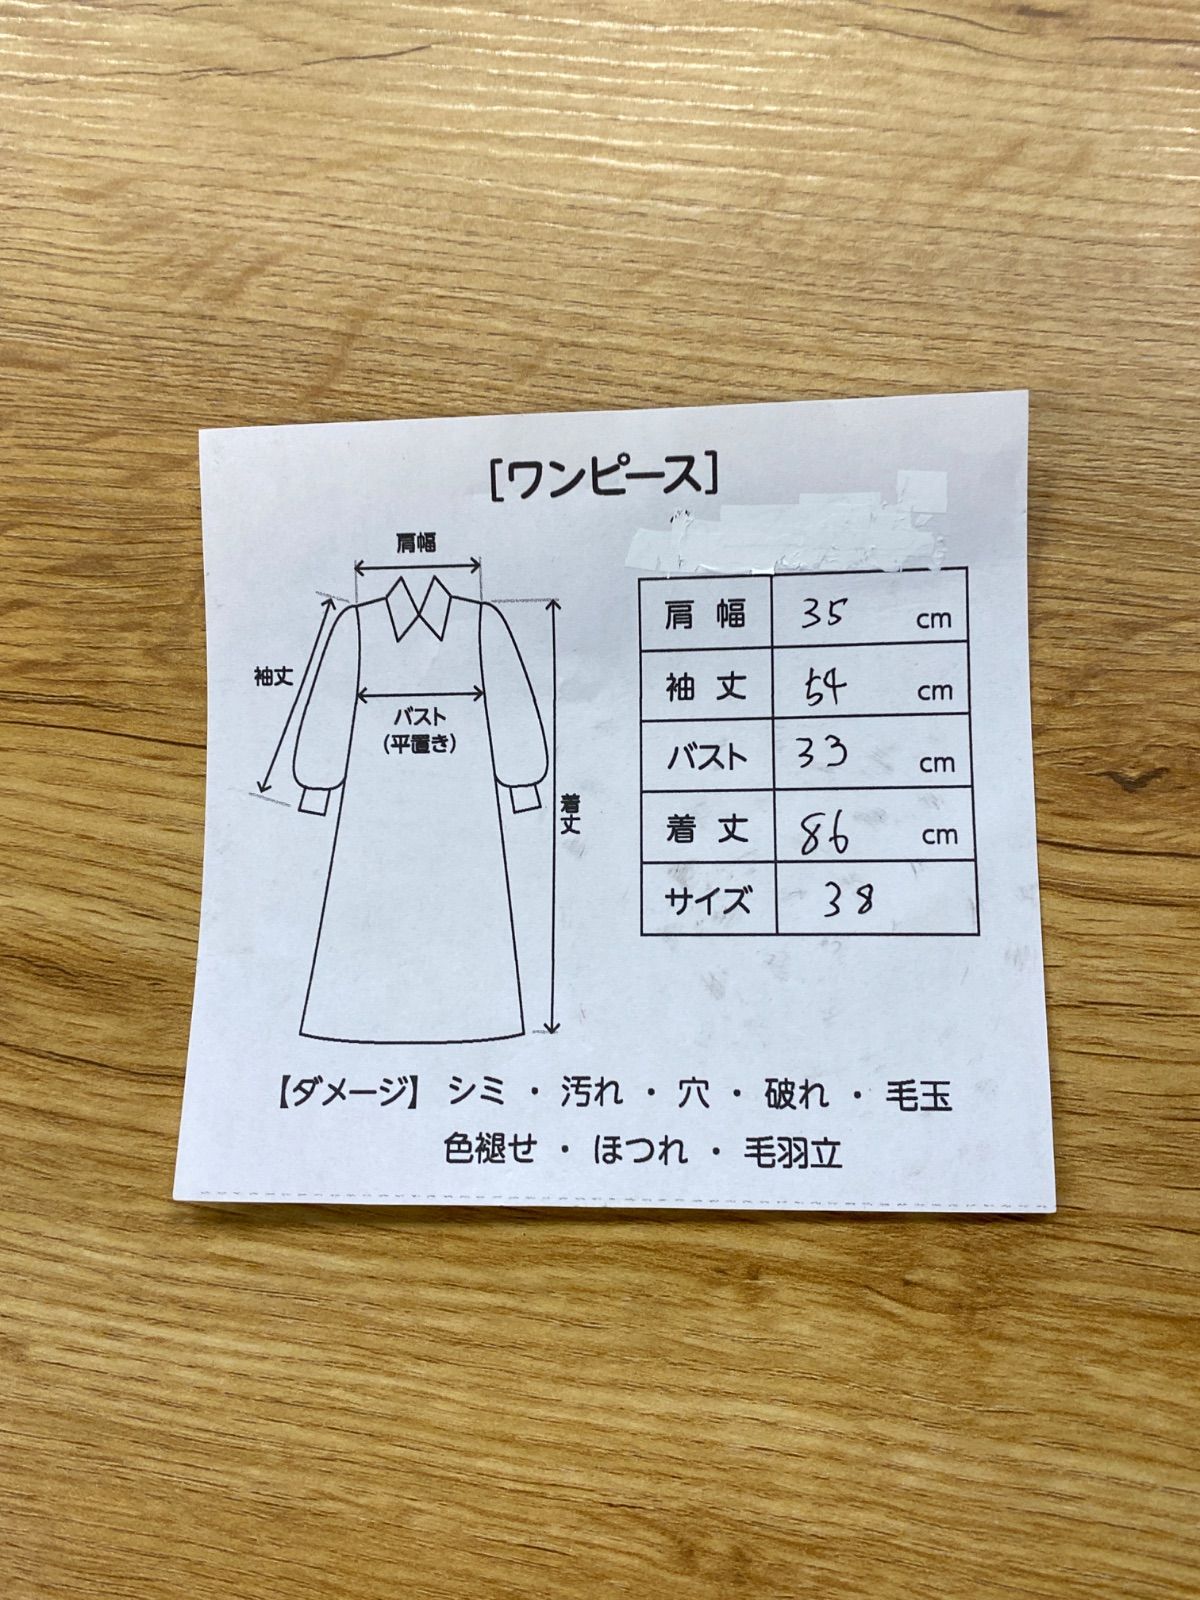 [ワンピース]
肩幅
袖丈
バスト
(平置き)
着丈
肩幅 35 cm
袖丈 54 cm
バスト 33 cm
着丈 86 cm
サイズ 38
【ダメージ】 シミ ・ 汚れ ・ 穴 ・ 破れ ・ 毛玉
色褪せ ・ ほつれ ・ 毛羽立